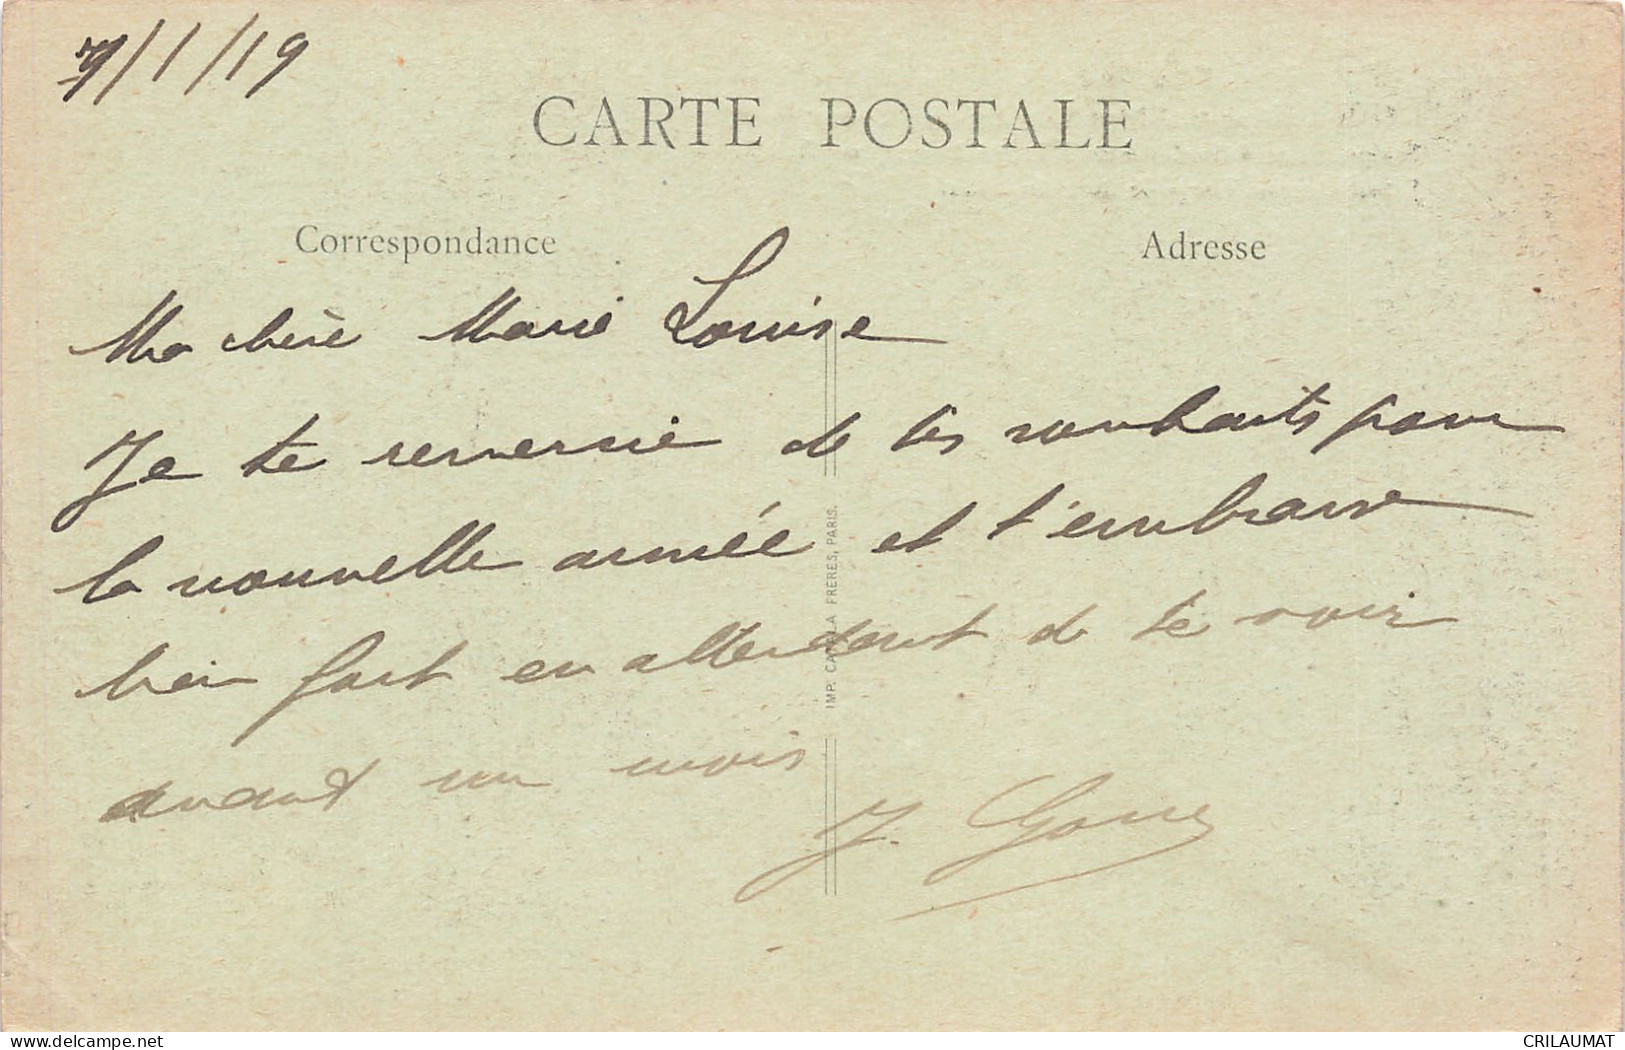 /1/19
CARTE POSTALE
Correspondance
Adresse
Ma chère Marie Louise
Je te remercie de tes souhaits pour
la nouvelle année et t'embrasse
bien fort en attendant de te voir
avant un mois
J.
IMP. CATALA FRÈRES, PARIS.
delcampe.net
CRILAUMAT